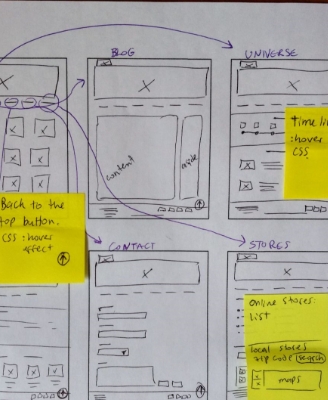 BLOG
UNIVERSE
content
aside
Time li
:hover
CSS
Back to the
top button.
CSS :hover
effect
CONTACT
STORES
Online stores:
list
local stores
zip code search
maps